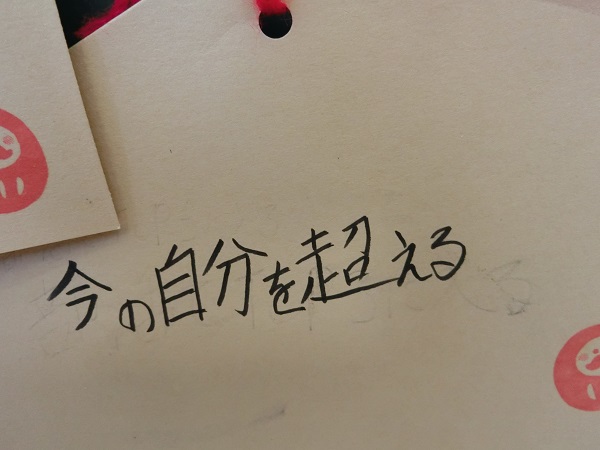 今の自分を超える